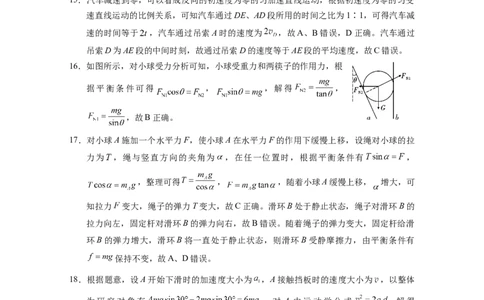 15．汽车减速到零，可以看成反向的初速度为零的匀加速直线运动，根据初速度为零的匀变
速直线运动的比例关系，可知汽车通过 DE、AD 段所用的时间之比为 1∶1，可得汽车减
速的时间等于 2t，汽车通过吊索 A 时的速度为 2v_D，故 A、B 错误，D 正确。汽车通过
吊索 D 为 AE 段的中间时刻，故通过吊索 D 的速度等于 AE 段的平均速度，故 C 错误。
16．如图所示，对小球受力分析可知，小球受重力和两筷子的作用力，根
据平衡条件可得 F_N1cosθ=F_N2，F_N1sinθ=mg，解得 F_N2=mg/tanθ，
F_N1=mg/sinθ，故 B 正确。
F_N1
F_N2
θ
G
a
b
17．对小球 A 施加一个水平力 F，使小球 A 在水平力 F 的作用下缓慢上移，设绳对小球的拉
力为 T，绳与竖直方向的夹角为 α，在任一位置时，根据平衡条件有 Tsinα=F，
Tcosα=m_Ag，整理可得 T=m_Ag/cosα，F=m_Agtanα，随着小球 A 缓慢上移，α 增大，可
知拉力 F 变大，绳子的弹力 T 变大，故 C 正确。滑环 B 处于静止状态，绳子对滑环 B 的
拉力向左，固定杆对滑环 B 的弹力向右，故 B 错误。随着绳子的弹力变大，固定杆给滑
环 B 的弹力增大，滑环 B 将一直处于静止状态，则滑环 B 受静摩擦力，由平衡条件有
f=mg 保持不变，故 A、D 错误。
18．根据题意，设 A 开始下滑时的加速度大小为 a₁，A 接触挡板时的速度大小为 v，以整体
为研究对象有 4mgsin30°−2mgsin30°=6ma₁，对 A 由运动学公式 v²=2a₁d，解得